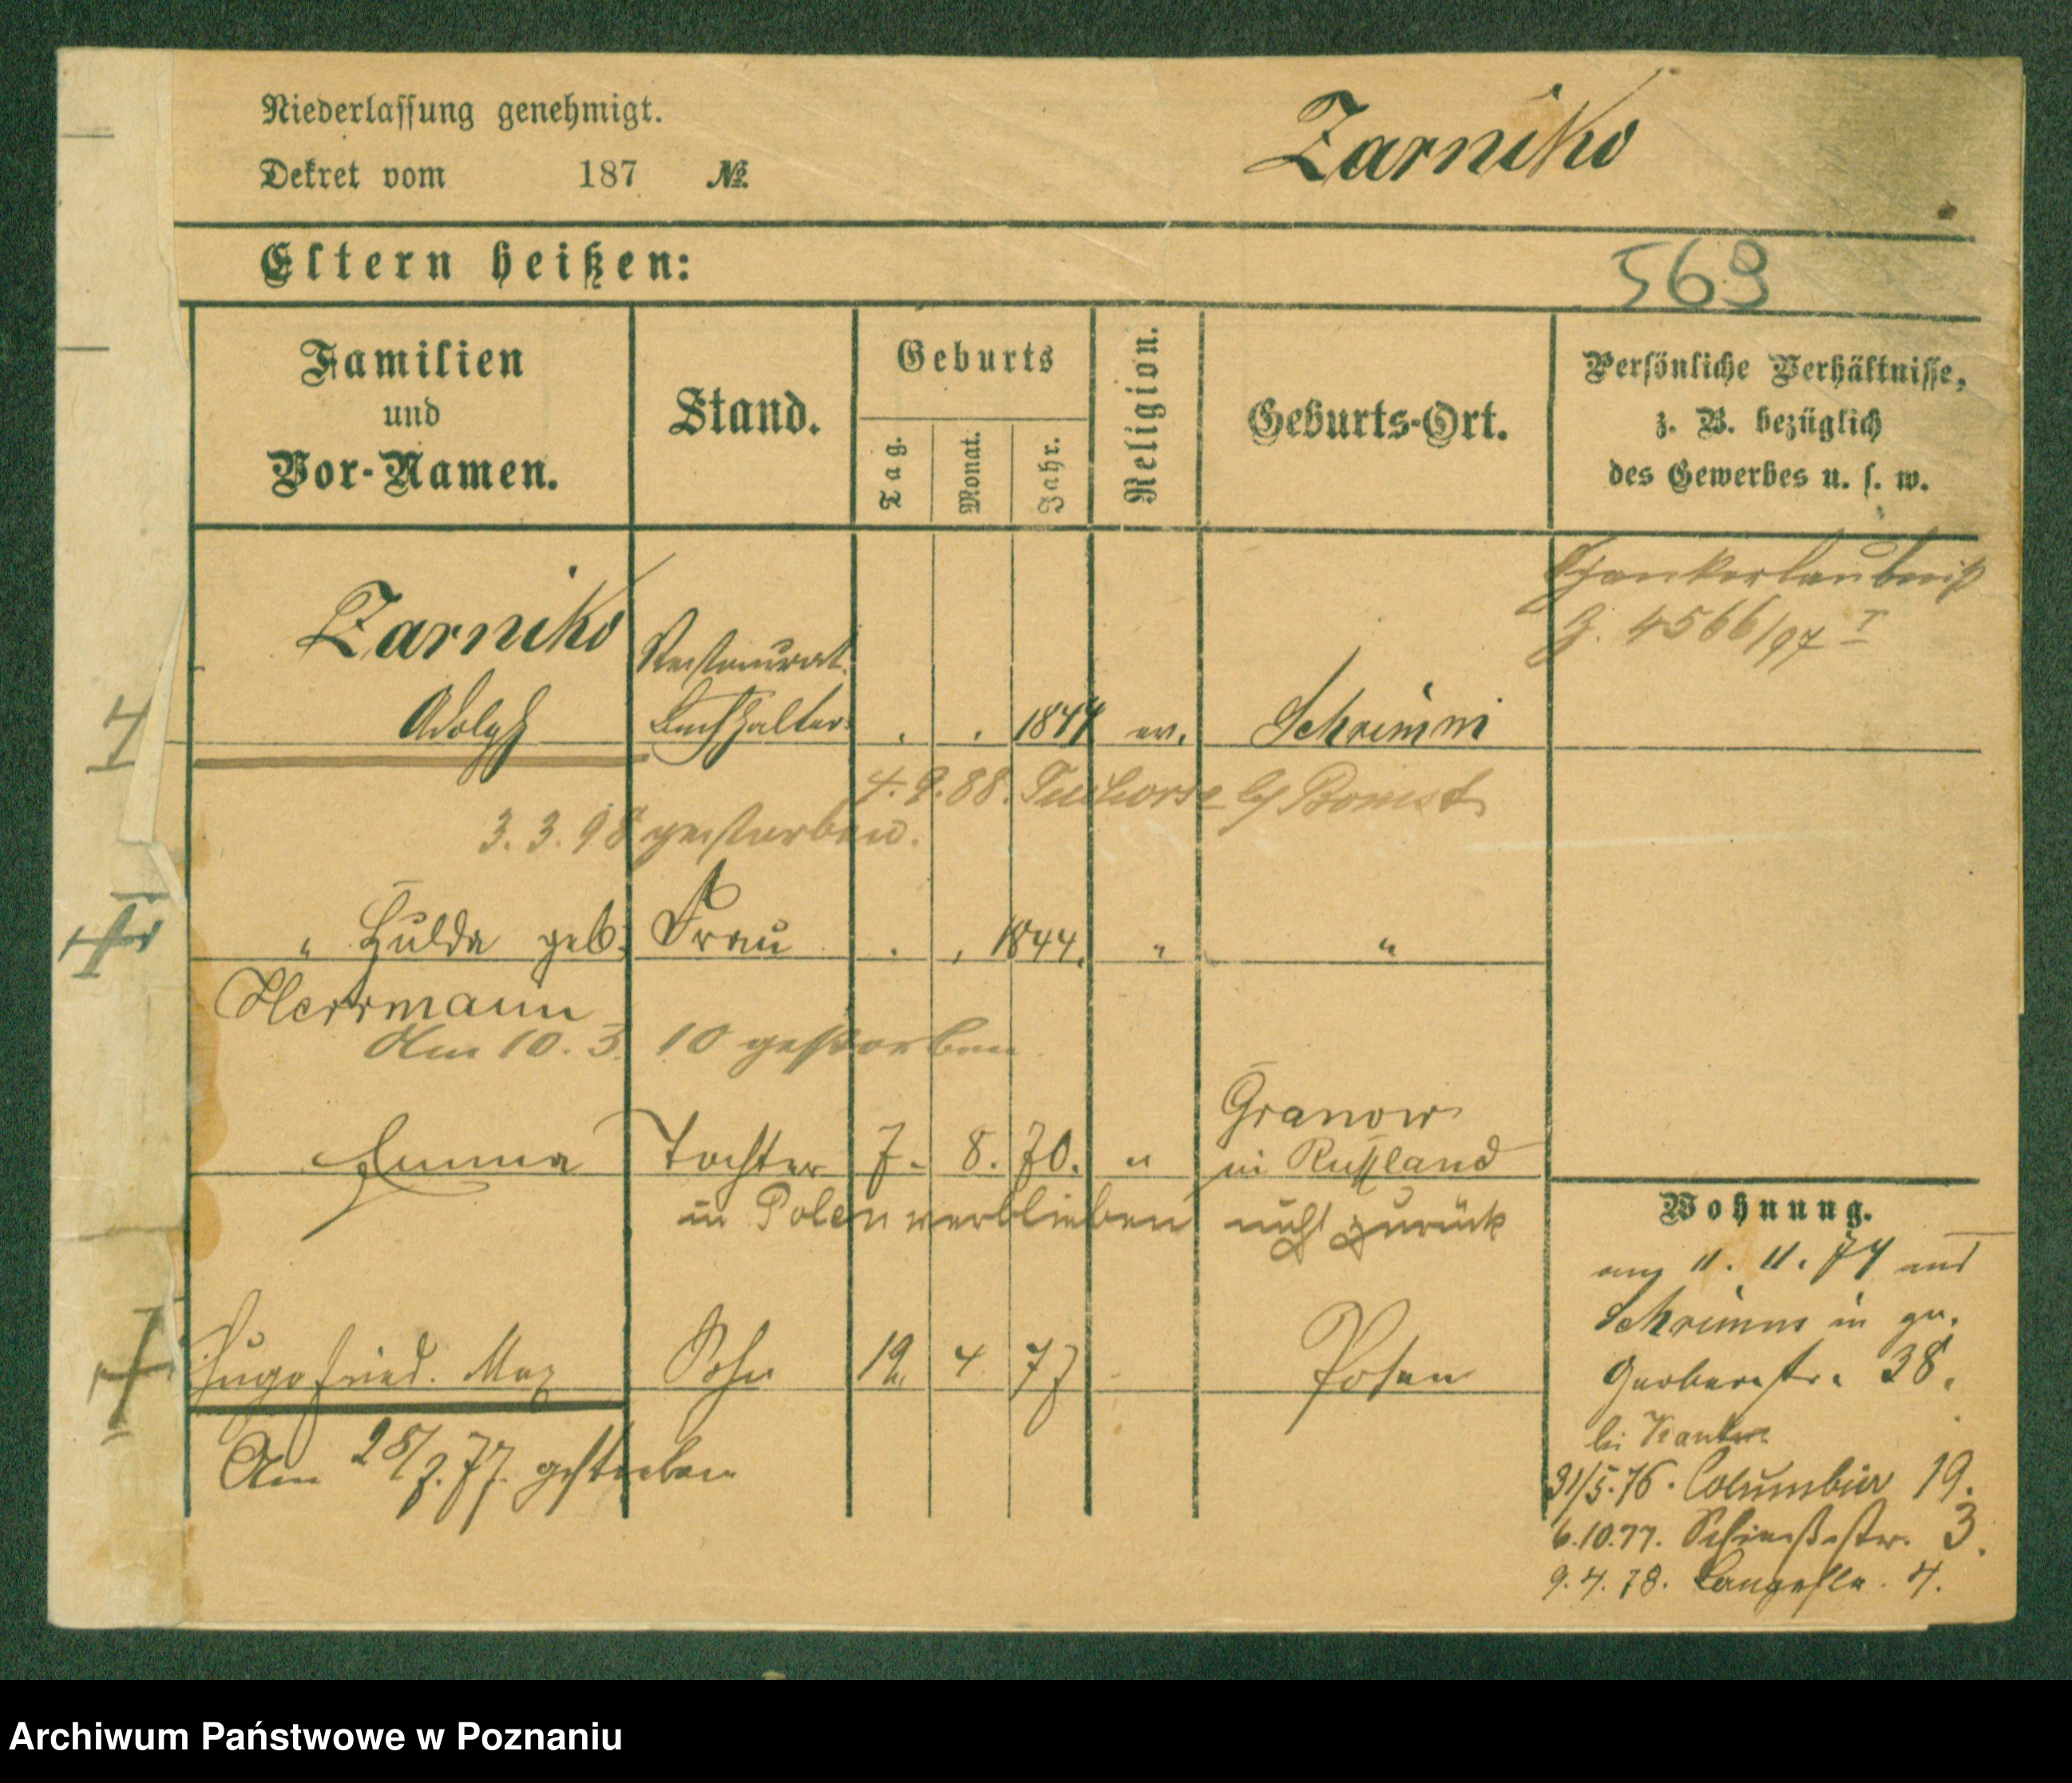 Niederlassung genehmigt.
Dekret vom 187 №
Zarniko
Eltern heißen:
569
Familien und Vor-Namen.
Stand.
Geburts
Tag.
Monat.
Jahr.
Religion.
Geburts-Ort.
Persönliche Verhältnisse,
z. B. bezüglich
des Gewerbes u. s. w.
Schankerlaubniß
4566/97 I
Zarniko
Restaurat.
Adolph Buchhalter . . 1844 ev. Schrimm
4. 9. 88. Bomst
3. 3. 98 gestorben.
" Hulda geb. Frau . . 1844. " "
Herrmann
Am 10. 3. 10 gestorben
Granow
Emma Tochter 7. 8. 70. " in Rußland
in Polen verblieben nicht zurück
Hugo Fried. Max Sohn 19. 4 77 Posen
Am 28/7. 77. gestorben
Wohnung.
11. 11. 74 aus
Schrimm in
Gerberstr. 38.
bei
31/5. 76. Columbia 19.
6. 10. 77. Schießstr. 3.
9. 4. 78. Langestr. 4.
Archiwum Państwowe w Poznaniu